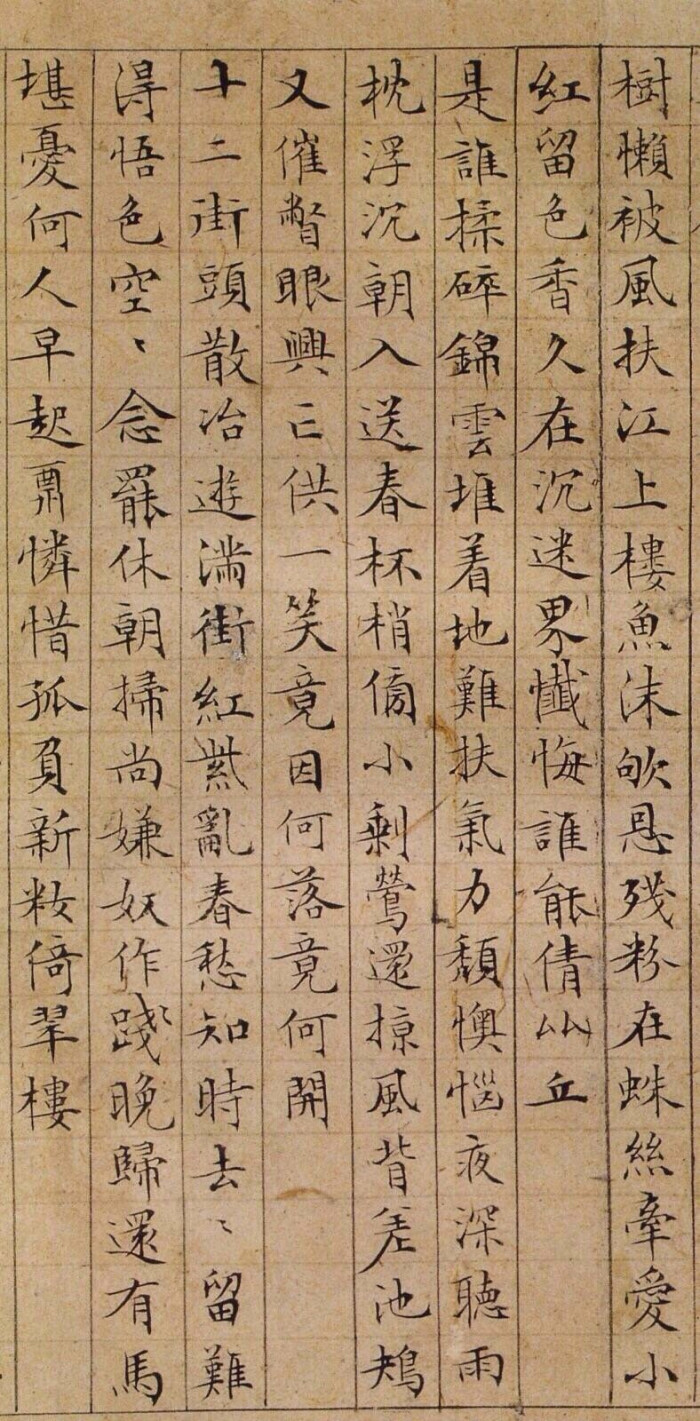 樹懶被風扶江上樓魚沫恩殘粉在蛛絲牽愛小
紅留色香久在沉迷界懺悔誰能倩比丘
是誰揉碎錦雲堆着地難扶氣力頹懊惱夜深聽雨
枕浮沉朝入送春杯梢傍小剩鶯還掠風背差池鴂
又催瞥眼興亡供一笑竟因何落竟何開
十二街頭散冶遊滿街紅紫亂春愁知時去〻留難
得悟色空〻念罷休朝掃尚嫌奴作踐晚歸還有馬
堪憂何人早起憐惜孤負新妝倚翠樓